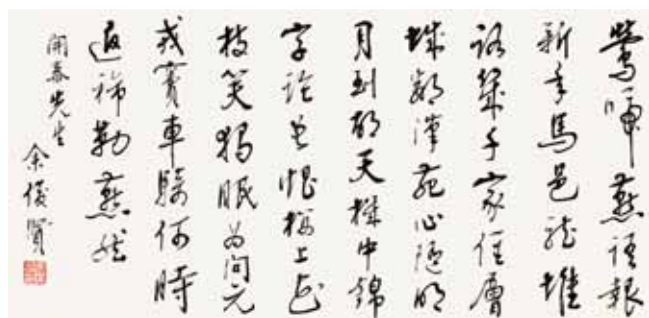 鶯啼燕語報
新年馬邑龍堆
路幾千家住層
城鄰漢苑心隨明
月到胡天機中錦
字論長恨樓上花
枝笑獨眠為問元
戎竇車騎何時
返旆勒燕然
開泰先生
余俊賢